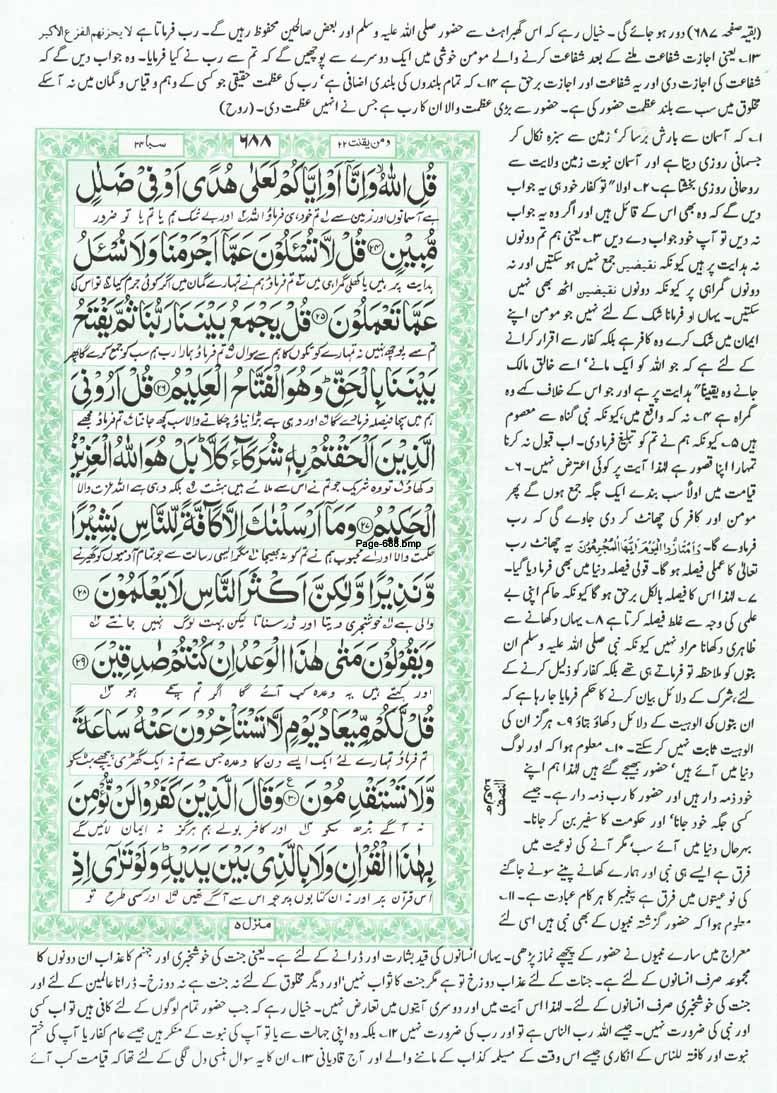 (بقیہ صفحہ ۶۸۷) دور ہو جائے گی۔ خیال رہے کہ اس گھبراہٹ سے حضور صلی اللہ علیہ وسلم اور بعض صالحین محفوظ رہیں گے۔ رب فرماتا ہے لا یحزنہم الفزع الاکبر
۱۳۔ یعنی اجازت شفاعت ملنے کے بعد شفاعت کرنے والے مومن خوشی میں ایک دوسرے سے پوچھیں گے کہ تم سے رب نے کیا فرمایا۔ وہ جواب دیں گے کہ
شفاعت کی اجازت دی اور یہ شفاعت اور اجازت برحق ہے ۱۴۔ کہ تمام بلندوں کی بلندی اضافی ہے' رب کی عظمت حقیقی جو کسی کے وہم و قیاس و گمان میں نہ آسکے
مخلوق میں سب سے بلند عظمت حضور کی ہے۔ حضور سے بڑی عظمت والا ان کا رب ہے جس نے انہیں عظمت دی۔ (روح)
ومن یقنت ۲۲
۶۸۸
سبا ۳۴
قُلِ اللّٰهُ وَاِنَّاۤ اَوْ اِیَّاكُمْ لَعَلٰی هُدًی اَوْ فِیْ ضَلٰلٍ
ہے آسمانوں اور زمین سے تم خود ہی فرماؤ اللہ اور بے شک ہم یا تم یا تو ضرور
مُّبِیْنٍ ﴿۲۴﴾ قُلْ لَّا تُسْـَٔلُوْنَ عَمَّاۤ اَجْرَمْنَا وَلَا نُسْـَٔلُ
ہدایت پر ہیں یا کھلی گمراہی میں تم فرماؤ ہم نے تمہارے گمان میں اگر کوئی جرم کیا تو اس کی
عَمَّا تَعْمَلُوْنَ ﴿۲۵﴾ قُلْ یَجْمَعُ بَیْنَنَا رَبُّنَا ثُمَّ یَفْتَحُ
تم سے پوچھ نہیں نہ تمہارے کوتکوں کا ہم سے سوال تم فرماؤ ہمارا رب ہم سب کو جمع کرے گا پھر
بَیْنَنَا بِالْحَقِّ وَهُوَ الْفَتَّاحُ الْعَلِیْمُ ﴿۲۶﴾ قُلْ اَرُوْنِیَ
ہم میں سچا فیصلہ فرما دے گا اور وہی ہے بڑا نیاؤ چکانے والا سب کچھ جانتا تم فرماؤ مجھے
الَّذِیْنَ اَلْحَقْتُمْ بِهٖ شُرَكَآءَ كَلَّا بَلْ هُوَ اللّٰهُ الْعَزِیْزُ
دکھاؤ تو وہ شریک جو تم نے اس سے ملائے ہیں ہشت بلکہ وہی ہے اللہ عزت والا
الْحَكِیْمُ ﴿۲۷﴾ وَمَاۤ اَرْسَلْنٰكَ اِلَّا كَآفَّةً لِّلنَّاسِ بَشِیْرًا
Page-688.bmp
حکمت والا اور اے محبوب ہم نے تم کو نہ بھیجا مگر ایسی رسالت سے جو تمام آدمیوں کو گھیرنے
وَّنَذِیْرًا وَّلٰكِنَّ اَكْثَرَ النَّاسِ لَا یَعْلَمُوْنَ ﴿۲۸﴾
والی ہے خوشخبری دیتا اور ڈر سناتا لیکن بہت لوگ نہیں جانتے
وَیَقُوْلُوْنَ مَتٰی هٰذَا الْوَعْدُ اِنْ كُنْتُمْ صٰدِقِیْنَ ﴿۲۹﴾
اور کہتے ہیں یہ وعدہ کب آئے گا اگر تم سچے ہو
قُلْ لَّكُمْ مِّیْعَادُ یَوْمٍ لَّا تَسْتَاْخِرُوْنَ عَنْهُ سَاعَةً
تم فرماؤ تمہارے لئے ایک ایسے دن کا وعدہ جس سے تم نہ ایک گھڑی پیچھے ہٹ سکو
وَّلَا تَسْتَقْدِمُوْنَ ﴿۳۰﴾ وَقَالَ الَّذِیْنَ كَفَرُوْا لَنْ نُّؤْمِنَ
نہ آگے بڑھ سکو اور کافر بولے ہم ہرگز نہ ایمان لائیں گے
بِهٰذَا الْقُرْاٰنِ وَلَا بِالَّذِیْ بَیْنَ یَدَیْهِ وَلَوْ تَرٰۤی اِذِ
اس قرآن پر اور نہ ان کتابوں پر جو اس سے آگے تھیں اور کسی طرح تو
منزل ۵
النصف
۱۔ کہ آسمان سے بارش برسا کر' زمین سے سبزہ نکال کر
جسمانی روزی دیتا ہے اور آسمان نبوت زمین ولایت سے
روحانی روزی بخشتا ہے۔ ۲۔ اولا" تو کفار خود ہی یہ جواب
دیں گے کہ وہ بھی اس کے قائل ہیں اور اگر وہ یہ جواب
نہ دیں تو آپ خود جواب دے دیں ۳۔ یعنی ہم تم دونوں
نہ ہدایت پر ہیں کیونکہ نقیضین جمع نہیں ہو سکتیں اور نہ
دونوں گمراہی پر کیونکہ دونوں نقیضین اٹھ بھی نہیں
سکتیں۔ یہاں او فرمانا شک کے لئے نہیں جو مومن اپنے
ایمان میں شک کرے وہ کافر ہے بلکہ کفار سے اقرار کرانے
کے لئے ہے کہ جو اللہ کو ایک مانے' اسے خالق مالک
جانے وہ یقینا" ہدایت پر ہے اور جو اس کے خلاف کہے وہ
گمراہ ہے ۴۔ نہ کہ واقع میں' کیونکہ نبی گناہ سے معصوم
ہیں ۵۔ کیونکہ ہم نے تم کو تبلیغ فرما دی۔ اب قبول نہ کرنا
تمہارا اپنا قصور ہے لہٰذا آیت پر کوئی اعتراض نہیں۔ ۶۔
قیامت میں اولاً سب بندے ایک جگہ جمع ہوں گے پھر
مومن اور کافر کی چھانٹ کر دی جاوے گی کہ رب
فرماوے گا۔ وَامْتَازُوا الْیَوْمَ اَیُّهَا الْمُجْرِمُوْنَ یہ چھانٹ رب
تعالیٰ کا عملی فیصلہ ہو گا۔ قولی فیصلہ دنیا میں بھی فرما دیا گیا۔
۷۔ لہٰذا اس کا فیصلہ بالکل برحق ہو گا کیونکہ حاکم اپنی بے
علمی کی وجہ سے غلط فیصلہ کرتا ہے ۸۔ یہاں دکھانے سے
ظاہری دکھانا مراد نہیں کیونکہ نبی صلی اللہ علیہ وسلم ان
بتوں کو ملاحظہ تو فرماتے ہی تھے بلکہ کفار کو ذلیل کرنے کے
لئے' شرک کے دلائل بیان کرنے کا حکم فرمایا جا رہا ہے کہ
ان بتوں کی الوہیت کے دلائل دکھاؤ بتاؤ ۹۔ ہرگز ان کی
الوہیت ثابت نہیں کر سکتے۔ ۱۰۔ معلوم ہوا کہ اور لوگ
دنیا میں آئے ہیں' حضور بھیجے گئے ہیں لہٰذا ہم اپنے
خود ذمہ دار ہیں اور حضور کا رب ذمہ دار ہے۔ جیسے
کسی جگہ خود جانا' اور حکومت کا سفیر بن کر جانا۔
بہرحال دنیا میں آئے سب' مگر آنے کی نوعیت میں
فرق ہے ایسے ہی نبی اور ہمارے کھانے پینے سونے جاگنے
کی نوعیتوں میں فرق ہے پیغمبر کا ہر کام عبادت ہے۔ ۱۱۔
معلوم ہوا کہ حضور گزشتہ نبیوں کے بھی نبی ہیں اسی لئے
معراج میں سارے نبیوں نے حضور کے پیچھے نماز پڑھی۔ یہاں انسانوں کی قید بشارت اور ڈرانے کے لئے ہے۔ یعنی جنت کی خوشخبری اور جہنم کا عذاب ان دونوں کا
مجموعہ صرف انسانوں کے لئے ہے۔ جنات کے لئے عذاب دوزخ تو ہے مگر جنت کا ثواب نہیں' اور دیگر مخلوق کے لئے نہ جنت ہے نہ دوزخ۔ ڈرانا عالمین کے لئے اور
جنت کی خوشخبری صرف انسانوں کے لئے۔ لہٰذا اس آیت میں اور دوسری آیتوں میں تعارض نہیں۔ خیال رہے کہ جب حضور تمام لوگوں کے لئے کافی ہیں تو اب کسی
اور نبی کی ضرورت نہیں۔ جیسے اللہ رب الناس ہے تو اور رب کی ضرورت نہیں ۱۲۔ بلکہ وہ اپنی جہالت سے یا تو آپ کی نبوت کے منکر ہیں جیسے عام کفار یا آپ کی ختم
نبوت اور کافۃ للناس کے انکاری جیسے اس وقت کے مسیلمہ کذاب کے ماننے والے اور آج قادیانی ۱۳۔ ان کا یہ سوال ہنسی دل لگی کے لئے تھا کہ قیامت کب آئے